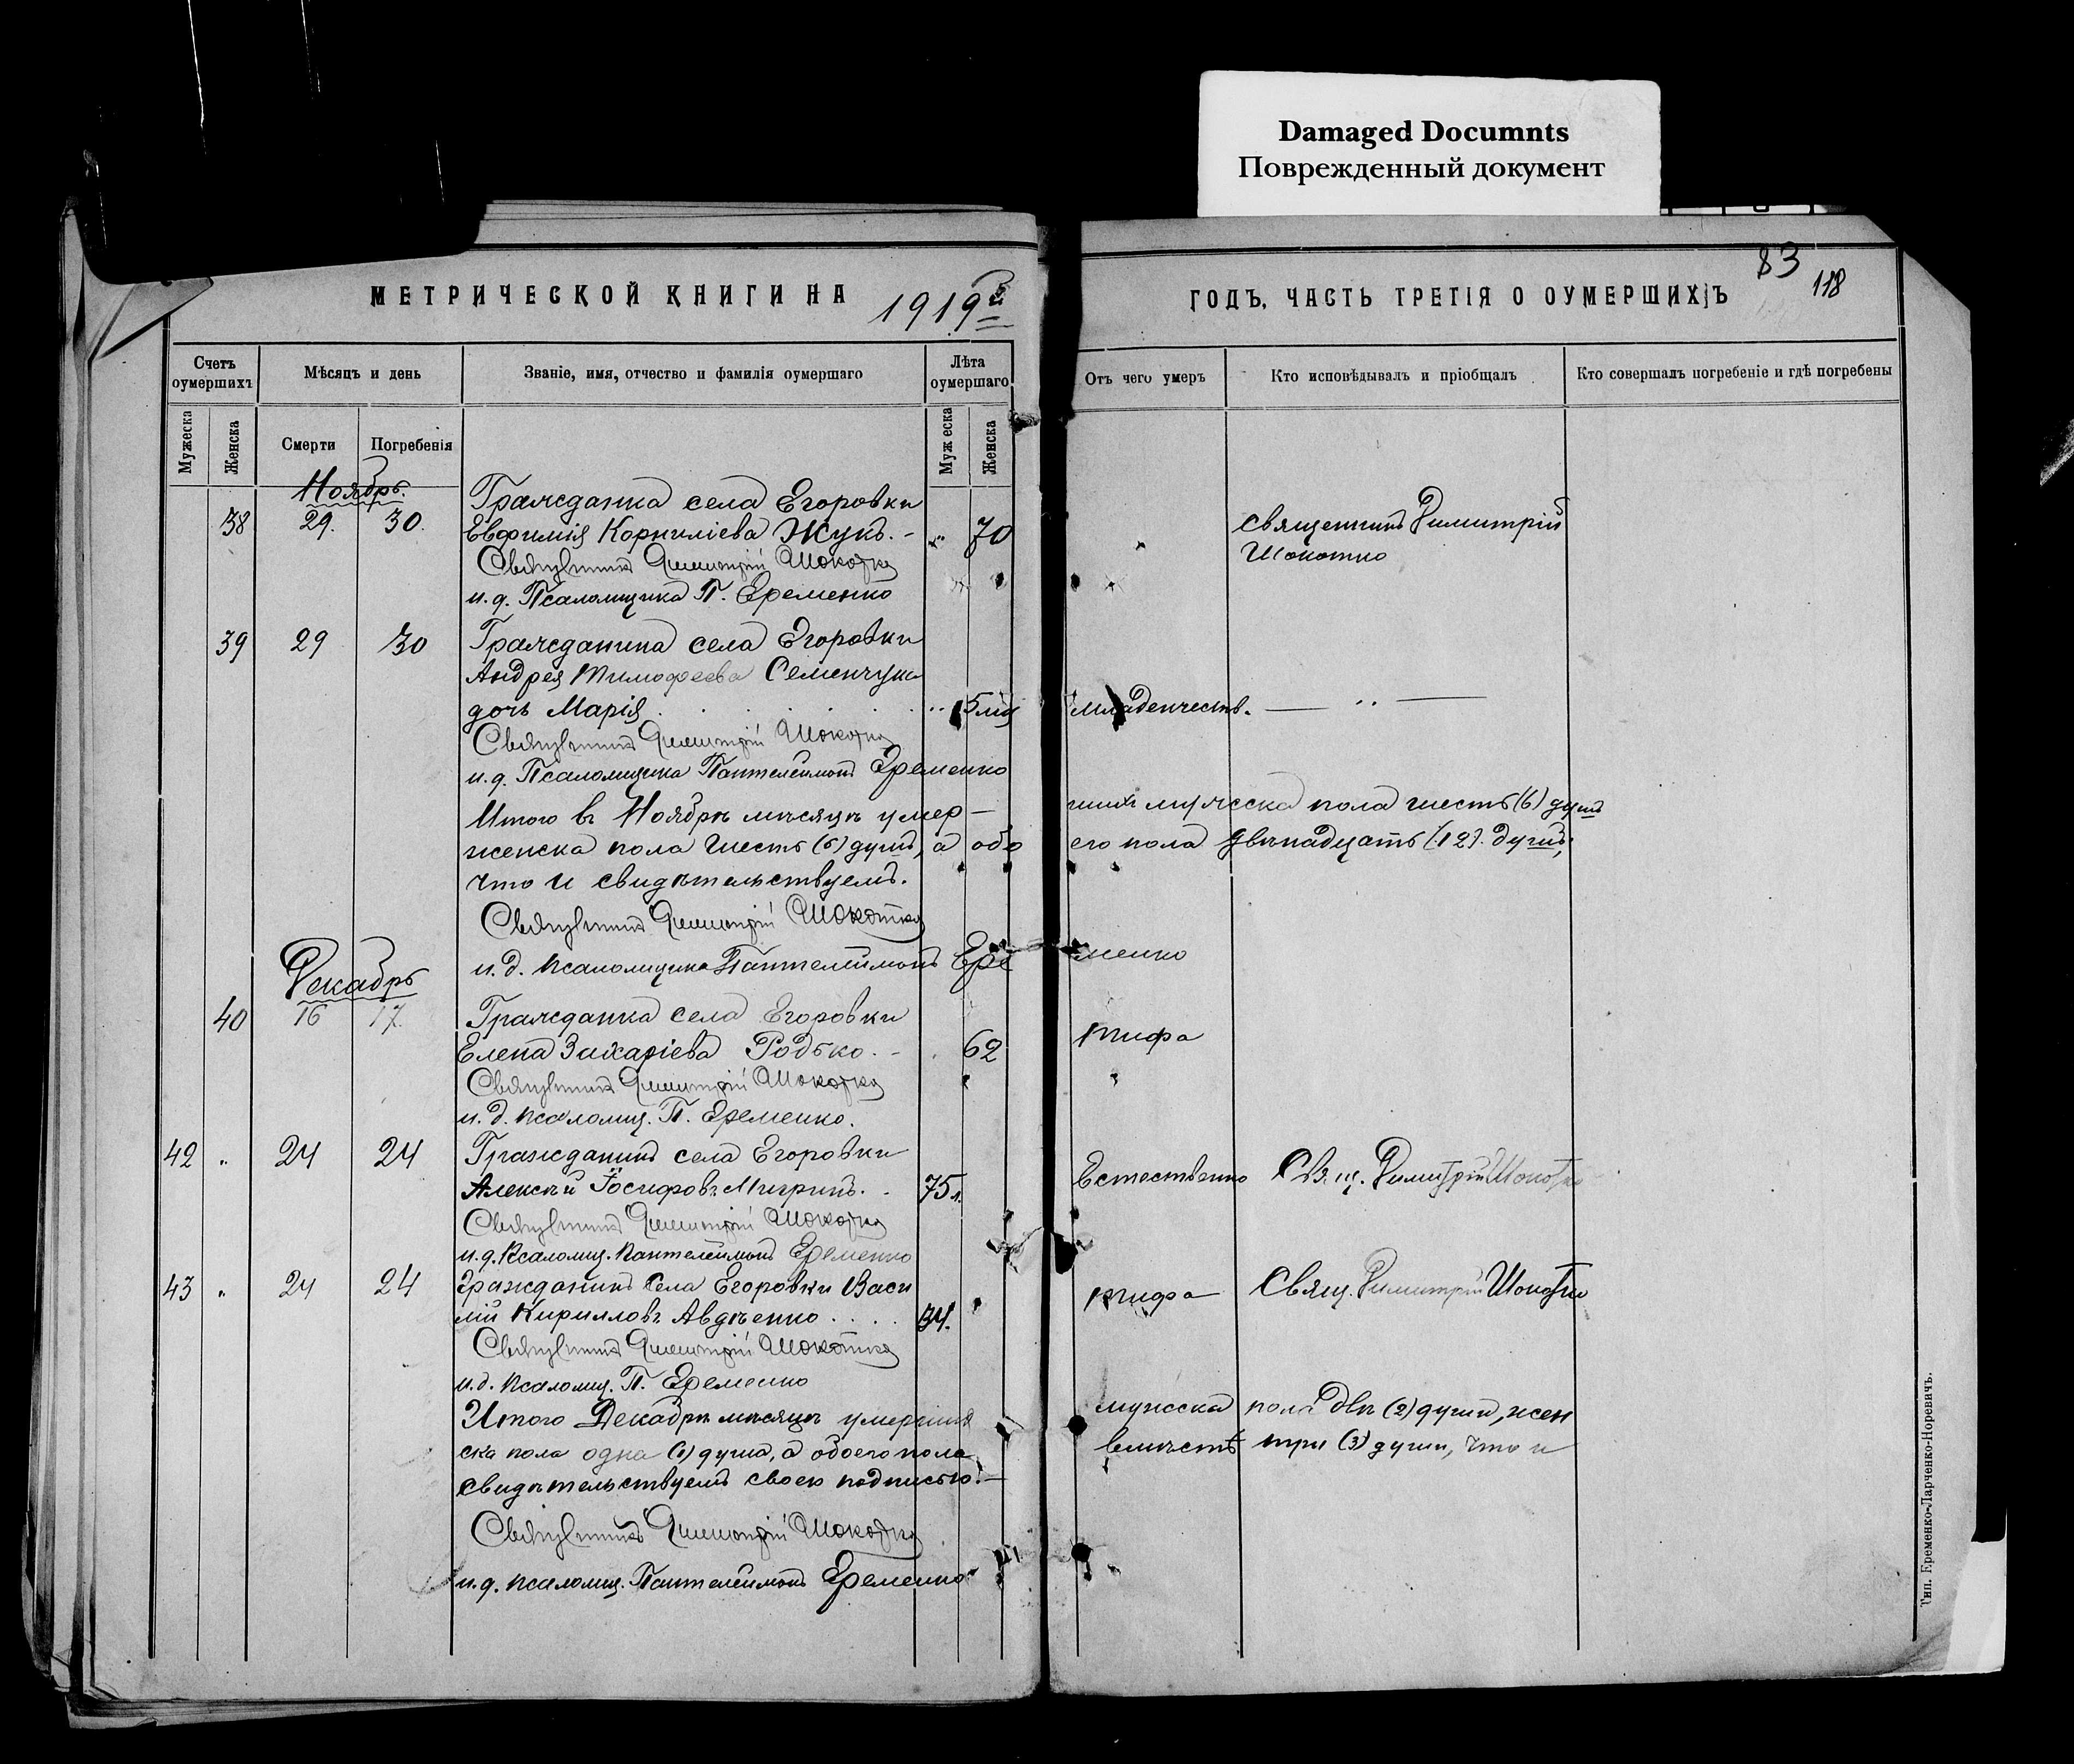 Damaged Documnts
Поврежденный документ
83
118
МЕТРИЧЕСКОЙ КНИГИ НА 1919
ГОДЪ, ЧАСТЬ ТРЕТІЯ О ОУМЕРШИХЪ
Счетъ оумершихъ
Мѣсяцъ и день
Званіе, имя, отчество и фамилія оумершаго
Лѣта оумершаго
Отъ чего умеръ
Кто исповѣдывалъ и пріобщалъ
Кто совершалъ погребеніе и гдѣ погребены
Мужеска
Женска
Смерти
Погребенія
Мужеска
Женска
Ноябрь.
Гражданка села Егоровки
38 29. 30. Евфимія Корниліева Жукъ. - „ 70 священникъ Димитрій
Шокотко
Священникъ Димитрій Шокотко
и.д. Псаломщика П. Еременко
39 29 30 Гражданина села Егоровки
Андрея Тимофеева Семенчука
дочь Марія . . . . . . „ 5 мц младенчеств. — „ —
Священникъ Димитрій Шокотко
и.д. Псаломщика Пантелеимонъ Еременко
Итого въ Ноябрѣ мѣсяцѣ умер- шихъ мужеска пола шесть (6) душъ
женска пола шесть (6) душъ, а обо его пола двѣнадцать (12) душъ,
что и свидѣтельствуемъ.
Священникъ Димитрій Шокотко
и.д. псаломщика Пантелеимонъ Ере менко
Декабрь
40 16 17. Гражданка села Егоровки
Елена Захаріева Родько. - 62 тифа
Священникъ Димитрій Шокотко
и.д. псаломщ. П. Еременко.
42 „ 24 24 Гражданинъ села Егоровки
Алексѣй Іосифовъ 75 л. Естественно Свящ. Димитрій Шокотко
Священникъ Димитрій Шокотко
и.д. Псаломщ. Пантелеимонъ Еременко
43 „ 24 24 Гражданинъ села Егоровки Васи
лій Кирилловъ Авдѣенко . . . . 34. тифа Свящ. Димитрій Шокотко
Священникъ Димитрій Шокотко
и.д. псаломщ. П. Еременко
Итого Декабрѣ мѣсяцѣ умершихъ мужска пола двѣ (2) души, жен
ска пола одна (1) душа, а обоего пола вмѣстѣ три (3) души, что и
свидѣтельствуемъ своею подписью.—
Священникъ Димитрій Шокотко
и.д. псаломщ. Пантелеимонъ Еременко
Тип. Еременко-Ларченко-Норевичъ.